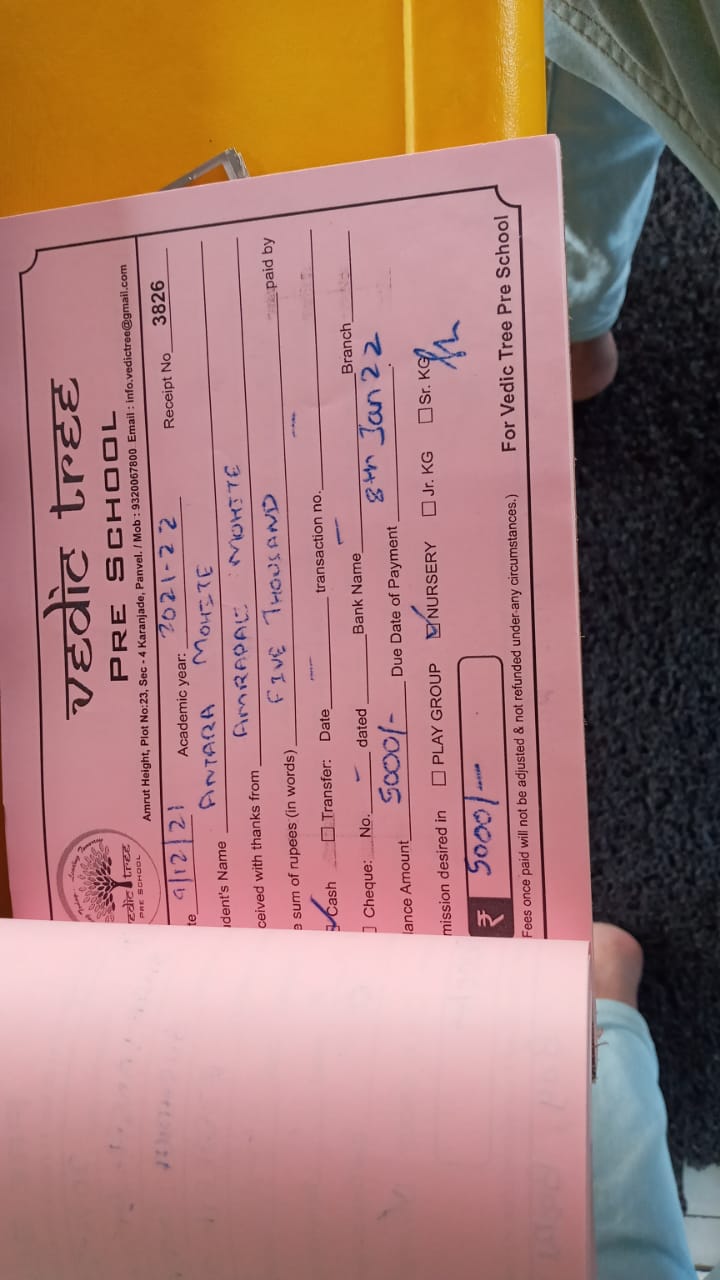 vedic tree
PRE SCHOOL
vedic tree
PRE SCHOOL
Amrut Height, Plot No:23, Sec - 4 Karanjade, Panvel. / Mob : 9320067800 Email : info.vedictree@gmail.com
te 9/12/21 Academic year: 2021-22 Receipt No 3826
dent's Name ANTARA MOHITE
ceived with thanks from AMRAPALI MOHITE
e sum of rupees (in words) FIVE THOUSAND — paid by
Cash Transfer: Date — transaction no.
Cheque: No. — dated Bank Name — Branch
lance Amount 5000/- Due Date of Payment 8th Jan 22
mission desired in PLAY GROUP NURSERY Jr. KG Sr. KG
₹ 5000/-
For Vedic Tree Pre School
Fees once paid will not be adjusted & not refunded under-any circumstances.)